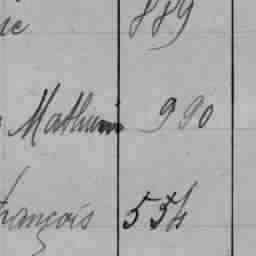 889
Mathurin 990
François 554